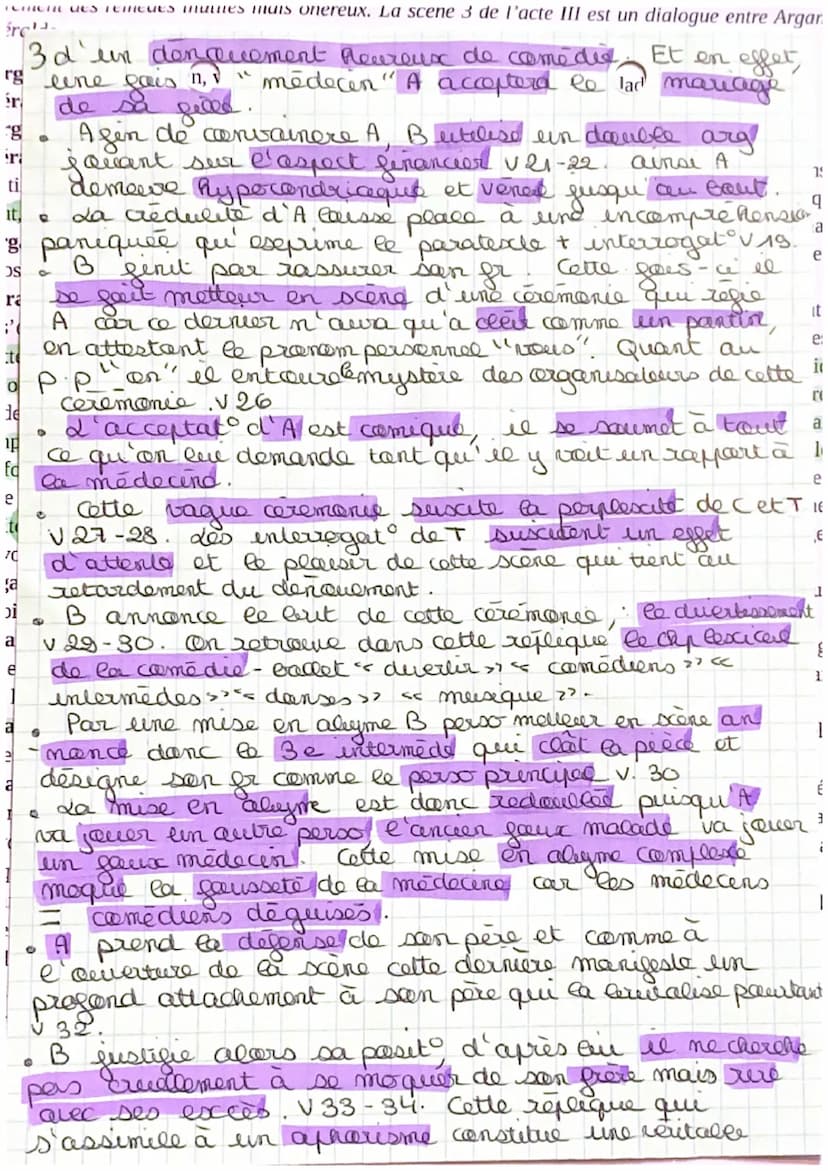 des remèdes inutiles mais onéreux. La scène 3 de l'acte III est un dialogue entre Argan
3 d'un dénouement heureux de comédie. Et en effet,
une fois n, v "médecin" A acceptera le lad mariage
de sa fille.
• Afin de convaincre A, B utilise un double arg
jouant sur l'aspect financier v21-22. ainsi A
demeure hypocondriaque et vénal jusqu'au bout.
• La crédulité d'A laisse place à une incompréhension
paniquée qu'exprime le paratexte + interrogat° v19.
• B finit par rassurer son fr. Cette fois-ci il
se fait metteur en scène d'une cérémonie qui régie
A car ce dernier n'aura qu'à obéir comme un pantin,
en attestant le pronom personnel "vous". Quant au
p.p "on" il entoure le mystère des organisateurs de cette
cérémonie. v26
• L'acceptat° d'A est comique, il se soumet à tout
ce qu'on lui demande tant qu'il y voit un rapport à
la médecine.
• Cette vague cérémonie suscite la perplexité de C et T
V27-28. Les interrogat° de T suscitent un effet
d'attente et le plaisir de cette scène qui tient au
retardement du dénouement.
• B annonce le but de cette cérémonie, : le divertissement
v29-30. On retrouve dans cette réplique le chp lexical
de la comédie-ballet « divertir » « comédiens » «
intermèdes » « danses » « musique ».
• Par une mise en abyme B perso metteur en scène an
-nonce donc le 3e intermède qui clôt la pièce et
désigne son fr comme le perso principal v. 30
• La mise en abyme est donc redoublée puisqu'A
va jouer un autre perso, l'ancien faux malade va jouer
un faux médecin. Cette mise en abyme complexe
moque la fausseté de la médecine car les médecins
= comédiens déguisés.
• A prend la défense de son père et comme à
l'ouverture de la scène cette dernière manifeste un
profond attachement à son père qui la
pourtant
v 32.
• B justifie alors sa posit°, d'après lui il ne cherche
pas cruellement à se moquer de son frère mais rire
avec ses excès. V33-34. Cette réplique qui
s'assimile à un aphorisme constitue une véritable